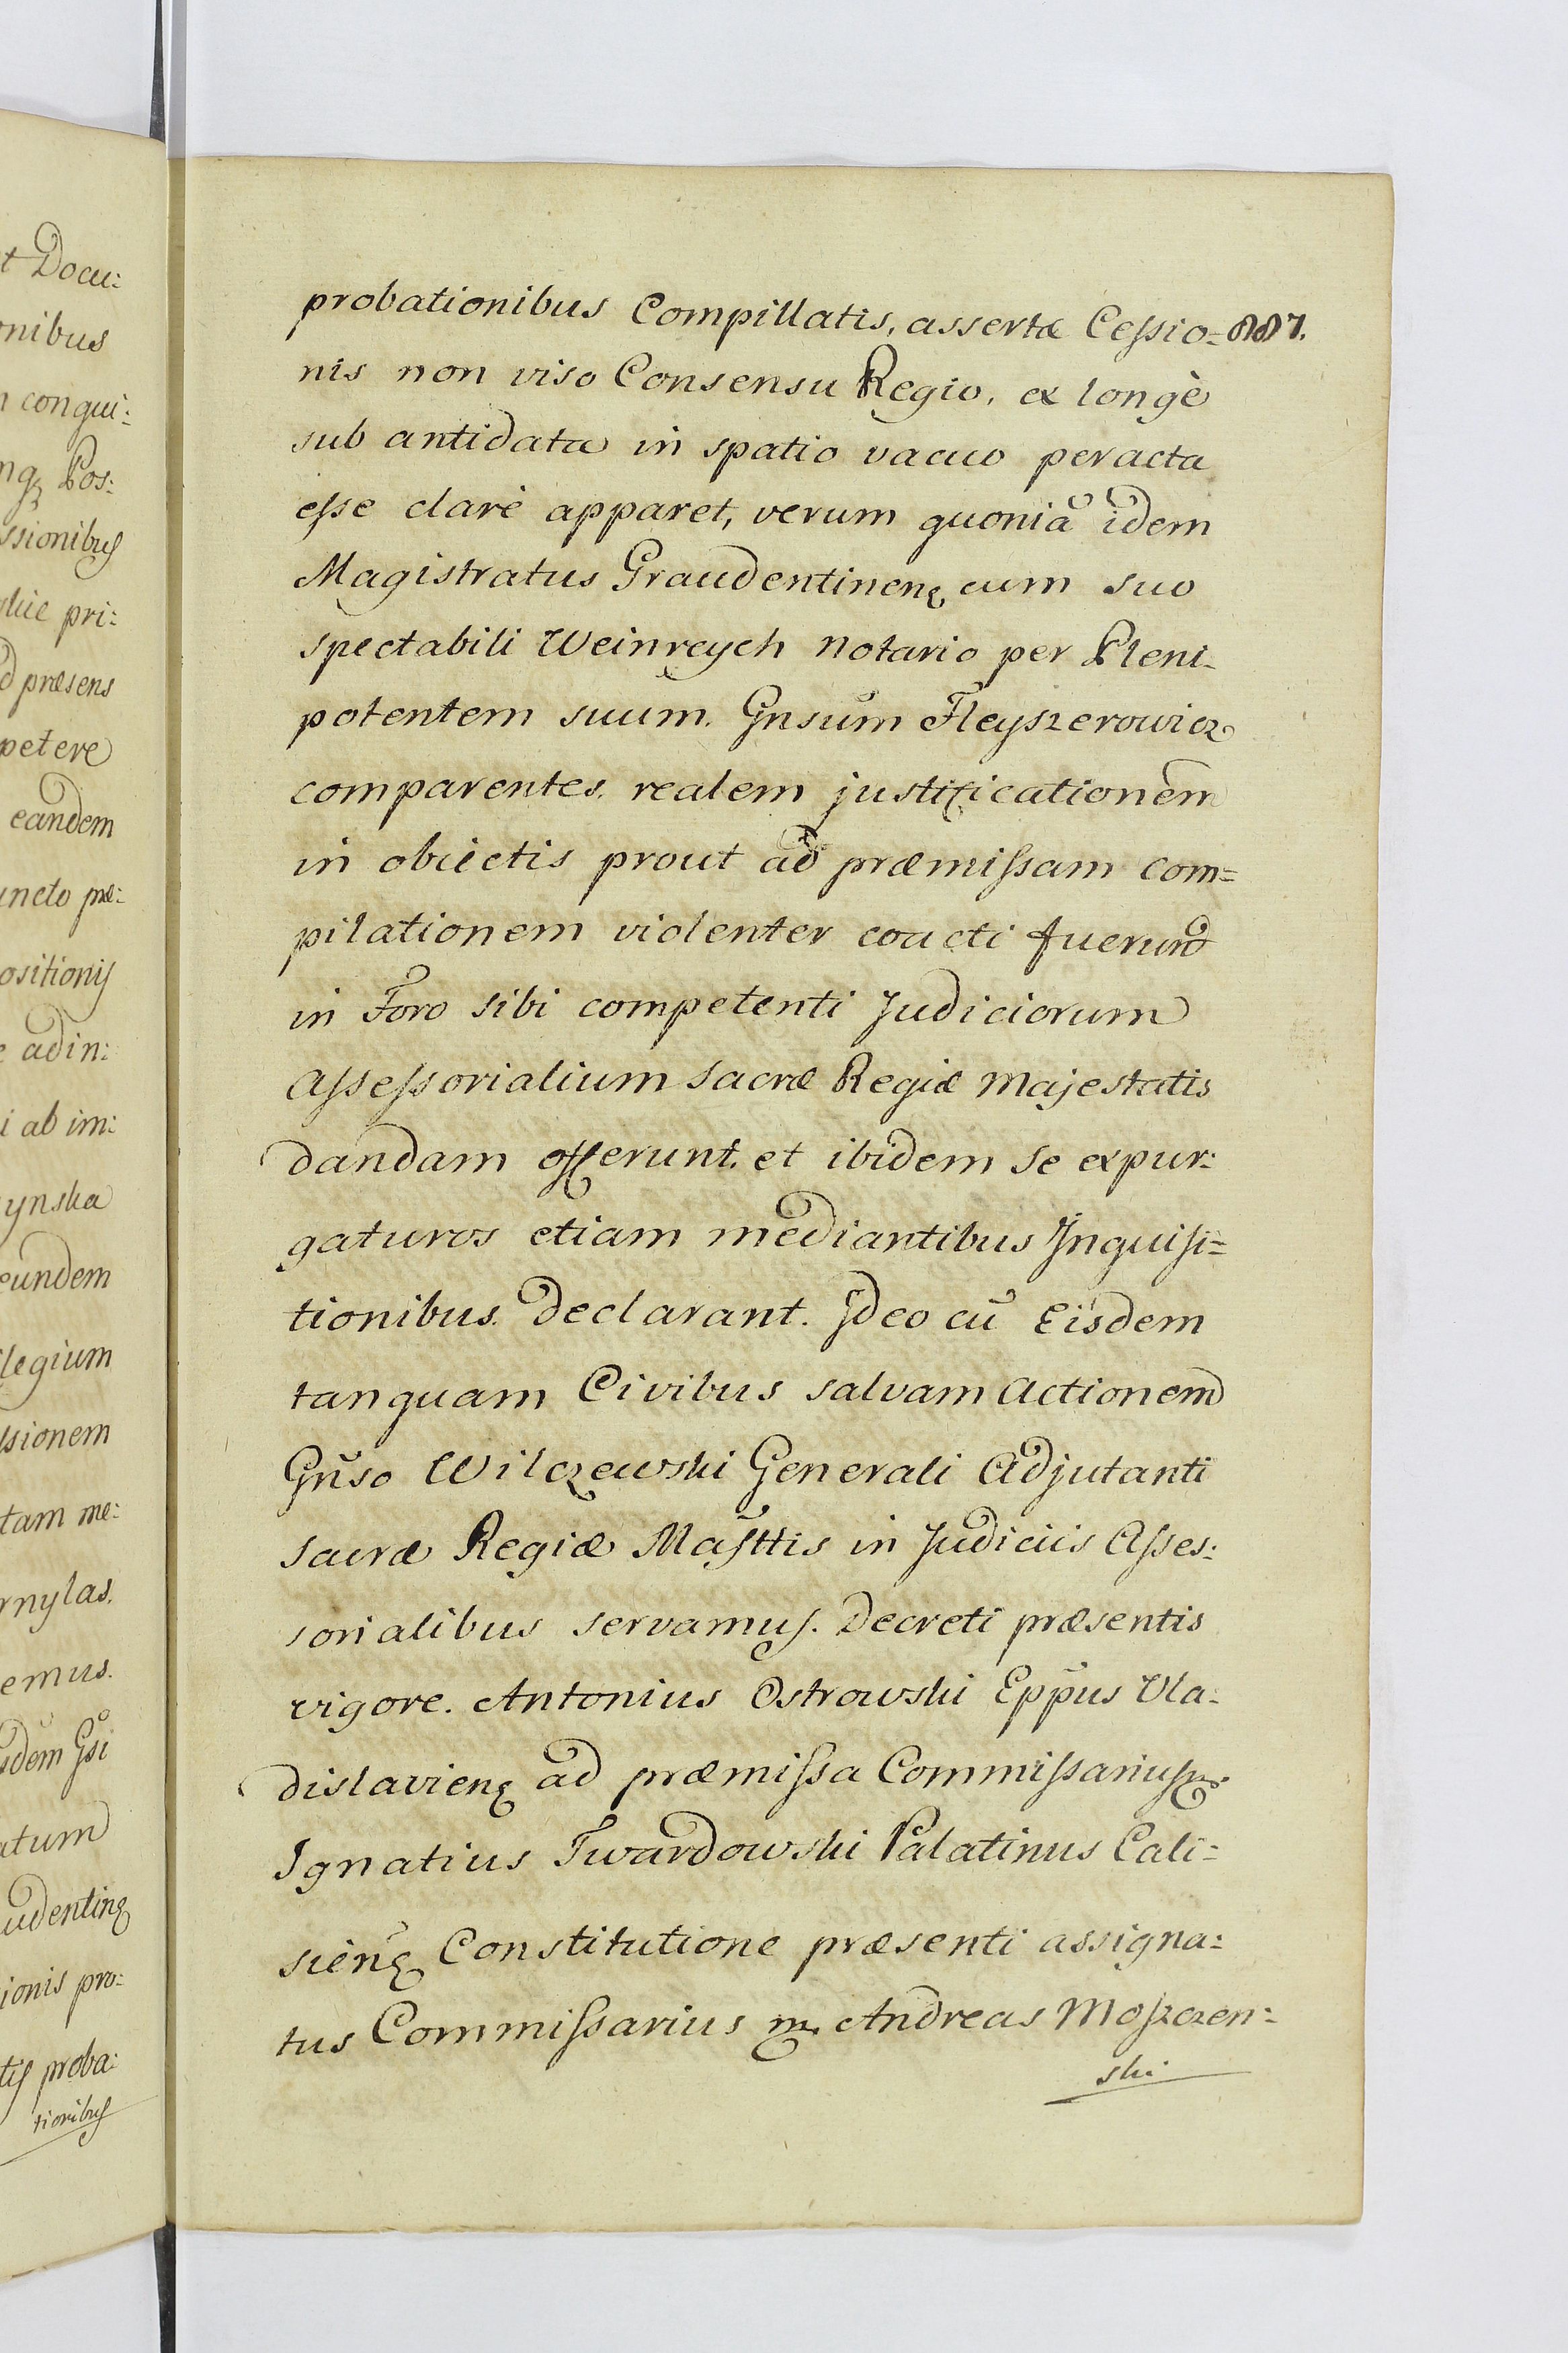 t Docu:
onibus
n conqui:
ng Pos:
ssionibus
pri:
d præsens
petere
eandem
uncto præ:
ositionis
e adin:
i ab im:
ynska
eundem
legium
sionem
tam me:
rnylas.
emus.
idem Gsi
atum
udentinȩ
ionis pro:
tis proba:
tionibus
probationibus Compillatis, assertæ Cessio= 887.
nis non viso Consensu Regio, ex longè
sub antidata in spatio vacuo peracta
esse clarè apparet, verum quoniã idem
Magistratus Graudentinenȩ cum suo
spectabili Weinreych Notario per Pleni-
potentem suum. Gnsũm Fleyszerowicz
comparentes. realem justificationem
in obiectis prout ad præmissam com=
pilationem violenter coacti fuerund
in Foro sibi competenti Judiciorum
Assessorialium Sacræ Regiæ Majestatis
dandam offerunt. et ibidem se expur:
gaturos etiam mediantibus Inquisi=
tionibus. declarant. Ideo cũ Eisdem
tanquam Civibus salvam Actionem
Gñso Wilczewski Generali Adjutanti
Sacræ Regiæ Maſttis in Judiciis Asses:
sorialibus servamus. Decreti præsentis
vigore. Antonius Ostrowski Epp̃us Vla:
dislavienȩ ad præmissa Commissarius mp.
Ignatius Twardowski Palatinus Cali=
sieñȩ Constitutione præsenti assigna:
tus Commissarius mp. Andreas Moszczen:
ski.